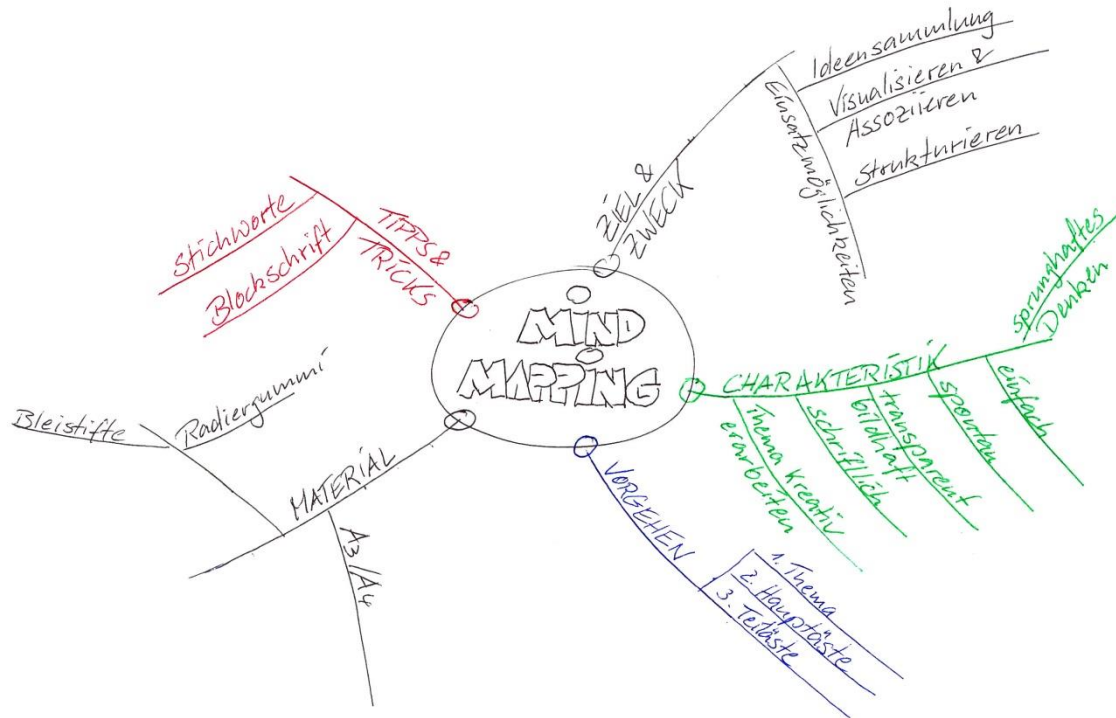 MIND
MAPPING
ZIEL &
ZWECK
Einsatzmöglichkeiten
Ideensammlung
Visualisieren &
Assoziieren
Strukturieren
CHARAKTERISTIK
sprunghaftes
Denken
einfach
spontan
transparent
bildhaft
schriftlich
Thema kreativ
erarbeiten
VORGEHEN
1. Thema
2. Hauptäste
3. Teiläste
MATERIAL
A3/A4
Radiergummi
Bleistifte
TIPPS &
TRICKS
Stichworte
Blockschrift